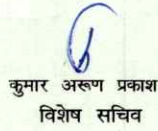 कुमार अरूण प्रकाश
विशेष सचिव